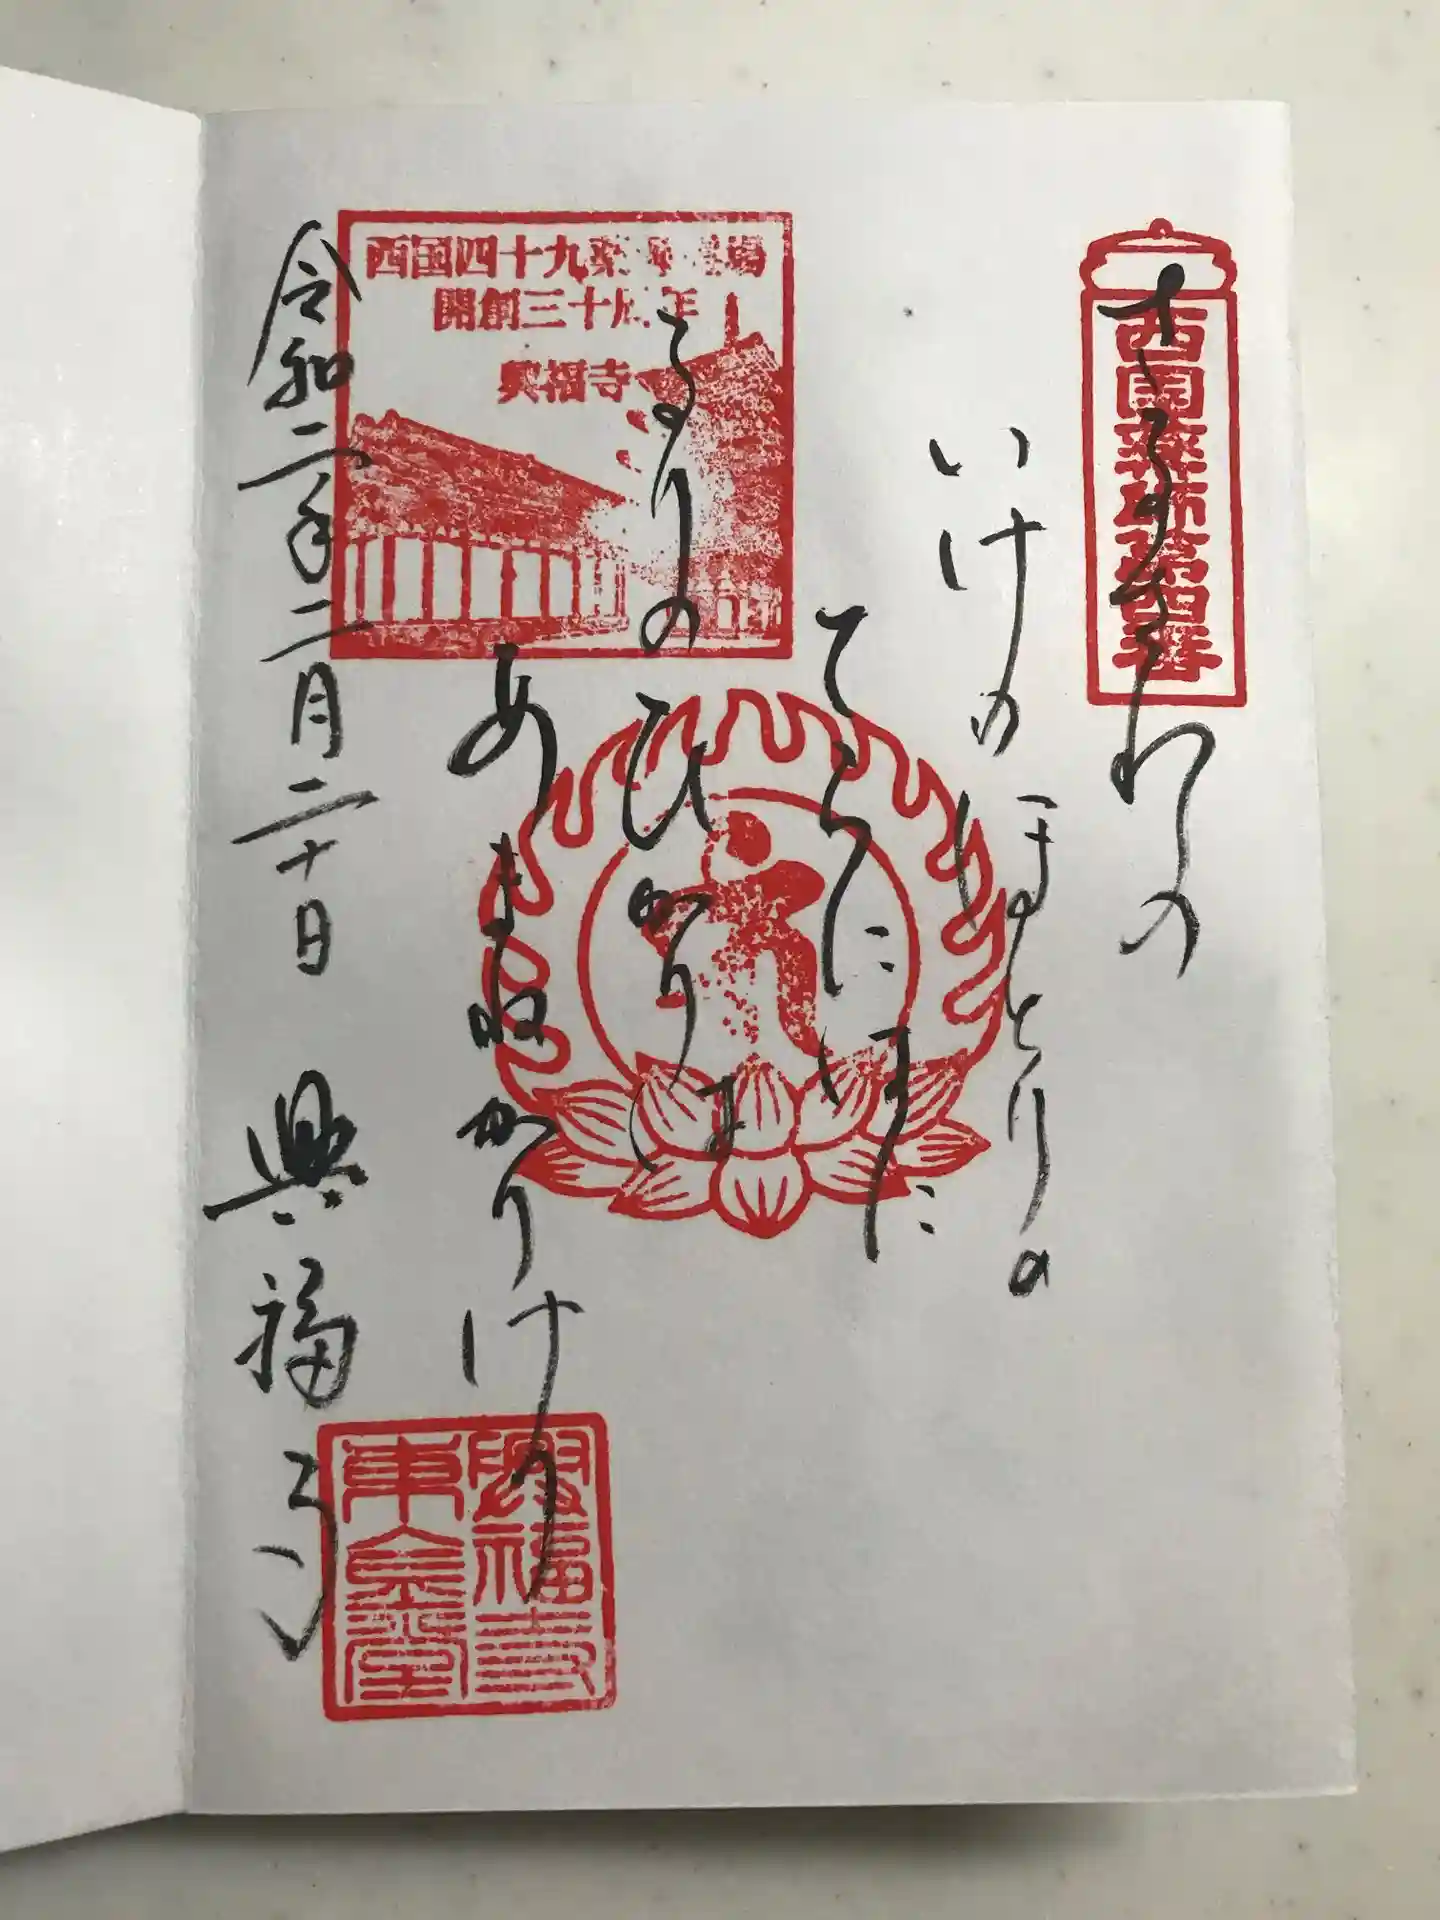 西国薬師第四番
さるさわの
いけのほとりの
るりのひかりは
あまねかりけり
西国四十九薬師霊場
開創三十周年
興福寺
令和二年二月二十日 興福寺
興福寺
東金堂